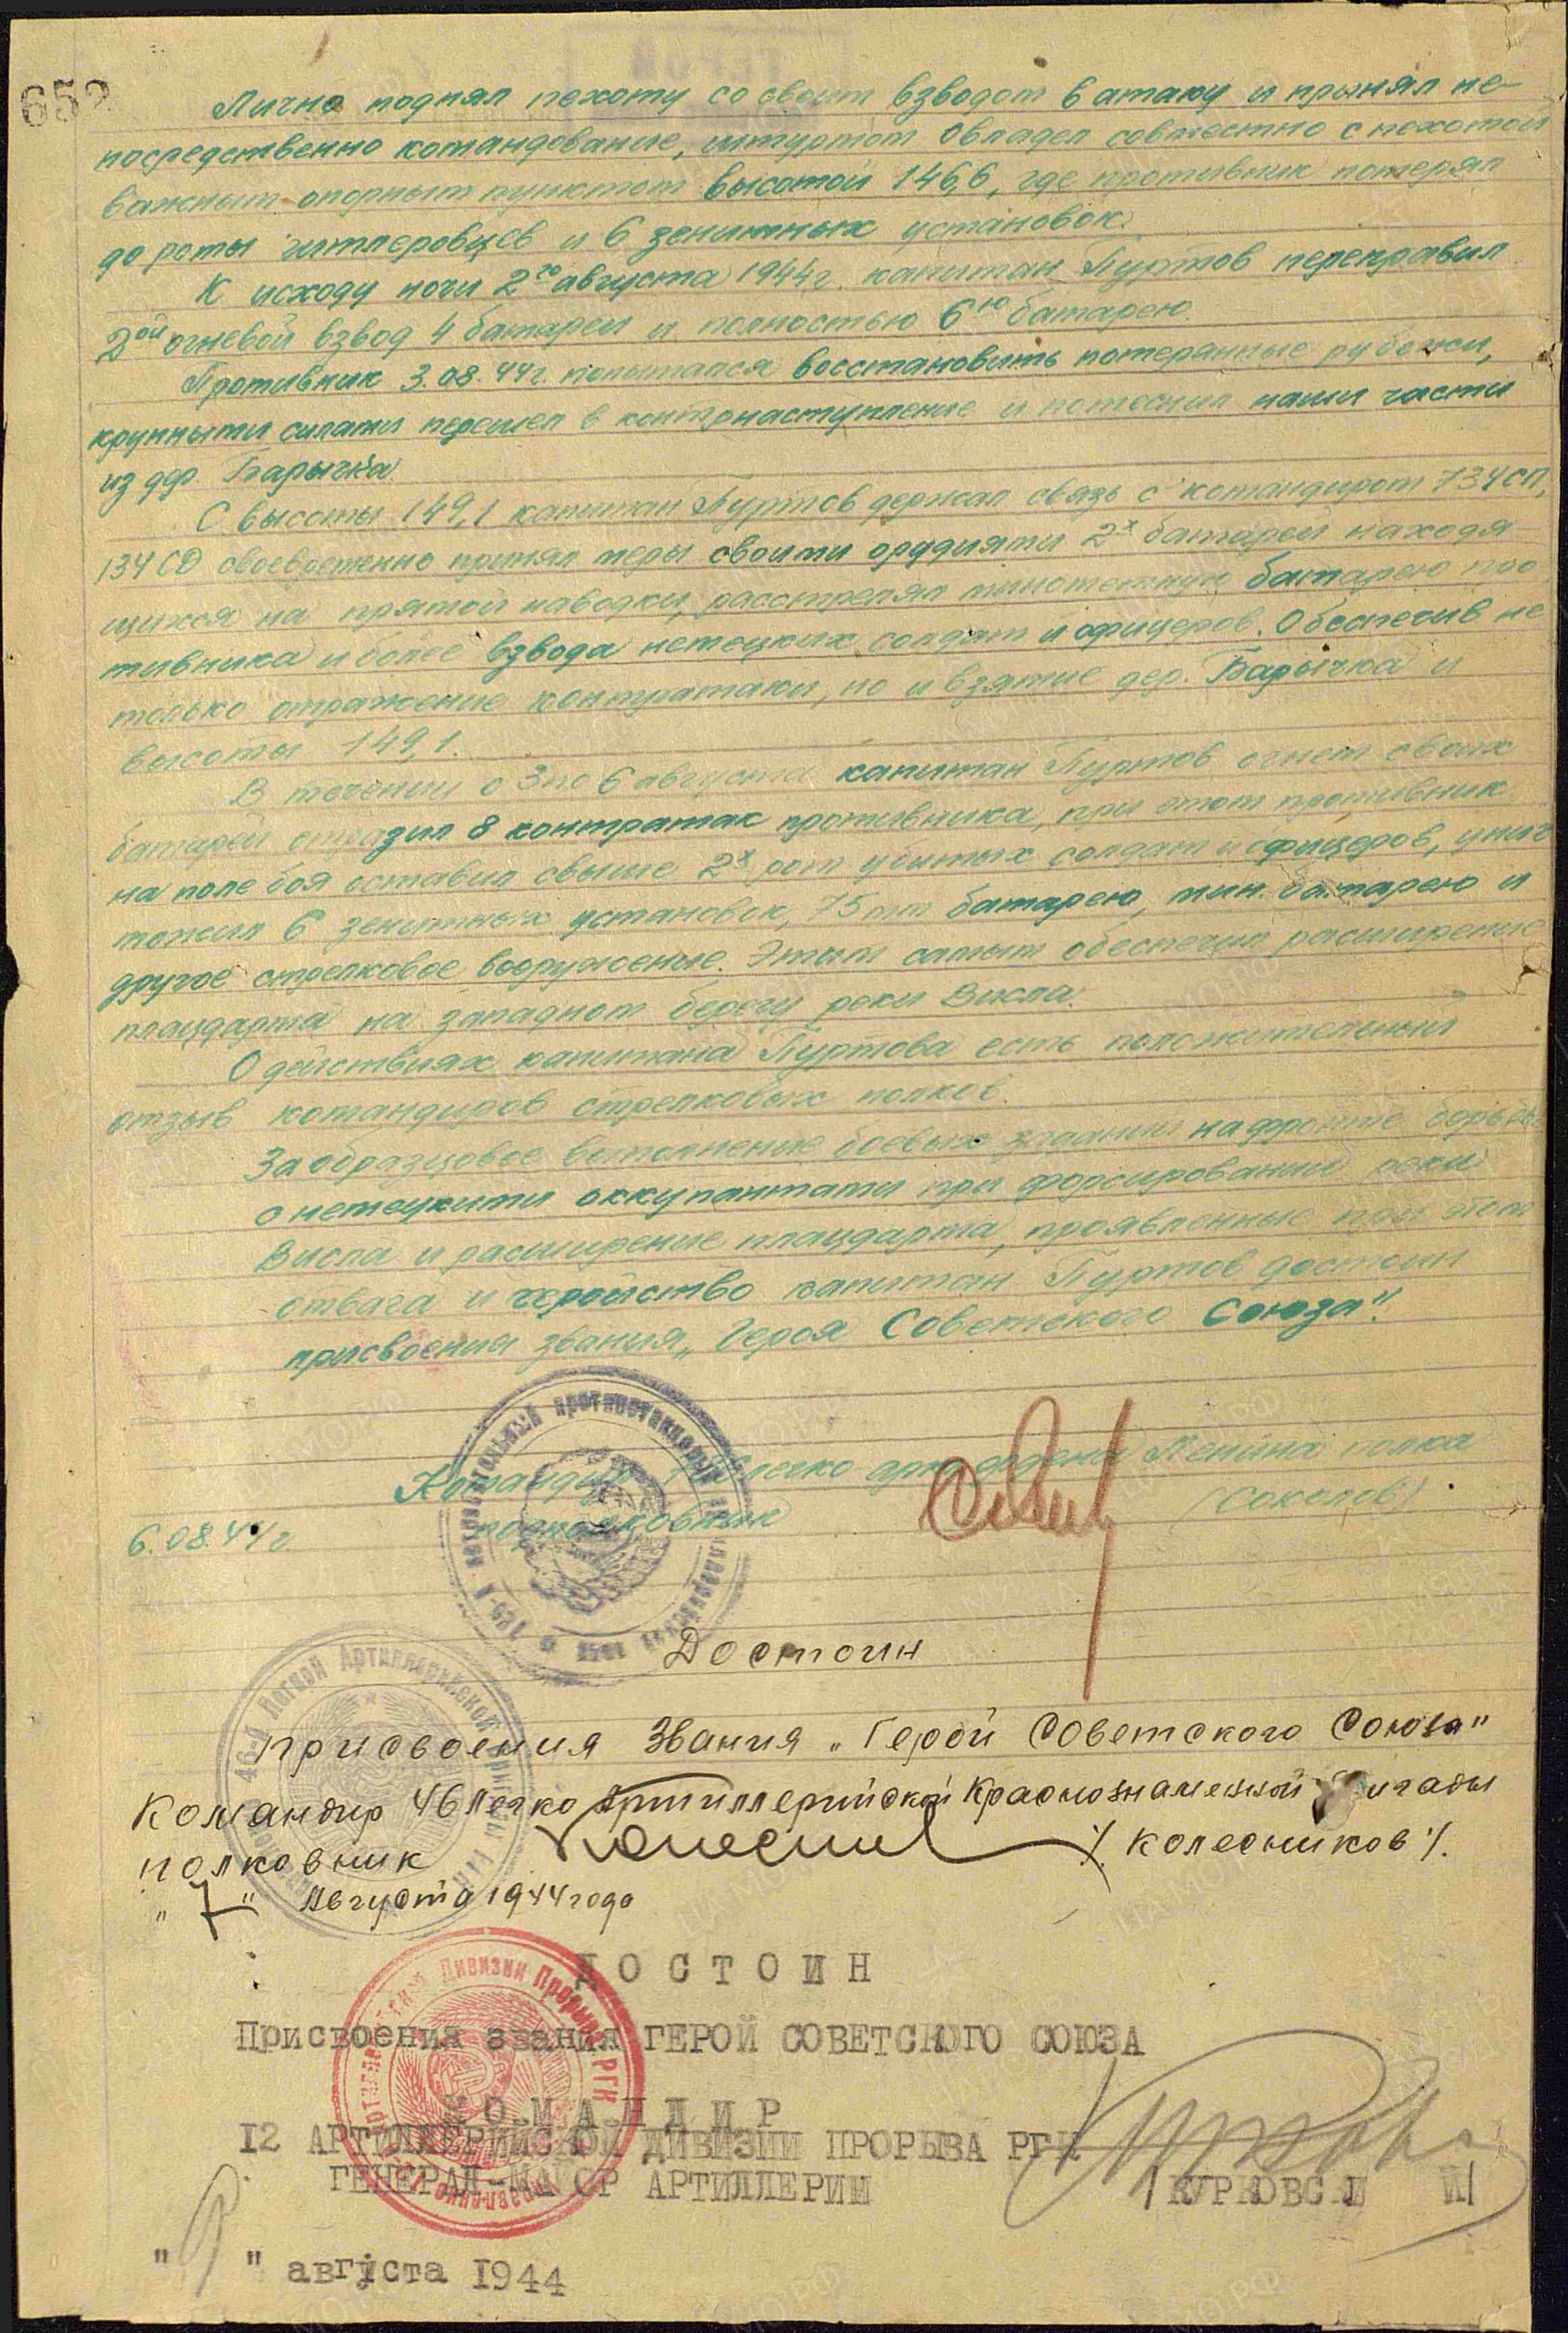 652
Лично поднял пехоту со своим взводом в атаку и принял не-
посредственно командование, штурмом овладел совместно с пехотой
важным опорным пунктом высотой 146,6, где противник потерял
до роты гитлеровцев и 6 зенитных установок.
К исходу ночи 2го августа 1944г. капитан Пуртов переправил
2ой огневой взвод 4 батареи и полностью 6ю батарею.
Противник 3.08.44г. попытался восстановить потерянные рубежи,
крупными силами перешел в контрнаступление и потеснил наши части
из дер. Барычка.
С высоты 149,1 капитан Пуртов держал связь с командиром 734 СП,
134 СД своевременно принял меры своими орудиями 2х батарей находя
щихся на прямой наводки, расстрелял минометную батарею про
тивника и более взвода немецких солдат и офицеров. Обеспечив не
только отражение контратаки, но и взятие дер. Барычка и
высоты 149,1.
В течении с 3 по 6 августа капитан Пуртов огнем своих
батарей отразил 8 контратак противника, при этом противник
на поле боя оставил свыше 2х рот убитых солдат и офицеров, унич
тожил 6 зенитных установок, 75 мм батарею, мин. батарею и
другое стрелковое вооружение. Этим самым обеспечил расширение
плацдарма на западном берегу реки Висла.
О действиях капитана Пуртова есть положительный
отзыв командиров стрелковых полков.
За образцовое выполнение боевых заданий на фронте борьбы
с немецкими оккупантами при форсировании реки
Висла и расширение плацдарма, проявленные при этом
отвага и геройство капитан Пуртов достоин
присвоения звания „Героя Советского Союза".
Командир легко-арт. ордена Ленина полка
подполковник (Соколов)
6.08.44г.
Достоин
присвоения звания „Герой Советского Союза"
Командир 46 Легко Артиллерийской Краснознаменной бригады
полковник /. Колесников /.
„7" Августа 1944 года
ДОСТОИН
Присвоения звания ГЕРОЙ СОВЕТСКОГО СОЮЗА
КО-МА-НДИР
12 АРТИЛЛЕРИЙСКОЙ ДИВИЗИИ ПРОРЫВА РГК
ГЕНЕРАЛ-МАЙОР АРТИЛЛЕРИИ /КУРКОВСКИЙ/
" " августа 1944